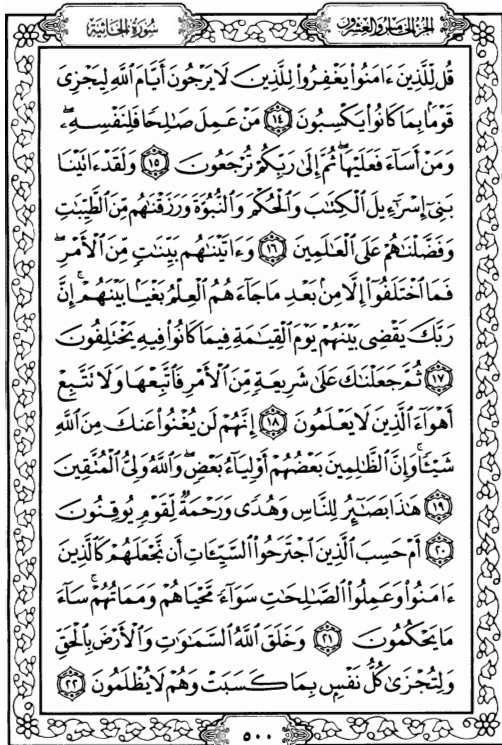 سُورَةُ الجَاثِيَة
الجُزْءُ الخَامِسُ وَالعِشْرُونَ
قُل لِّلَّذِينَ ءَامَنُوا۟ يَغْفِرُوا۟ لِلَّذِينَ لَا يَرْجُونَ أَيَّامَ ٱللَّهِ لِيَجْزِىَ
قَوْمًۢا بِمَا كَانُوا۟ يَكْسِبُونَ ١٤ مَنْ عَمِلَ صَٰلِحًا فَلِنَفْسِهِۦ ۖ
وَمَنْ أَسَآءَ فَعَلَيْهَا ۖ ثُمَّ إِلَىٰ رَبِّكُمْ تُرْجَعُونَ ١٥ وَلَقَدْ ءَاتَيْنَا
بَنِىٓ إِسْرَٰٓءِيلَ ٱلْكِتَٰبَ وَٱلْحُكْمَ وَٱلنُّبُوَّةَ وَرَزَقْنَٰهُم مِّنَ ٱلطَّيِّبَٰتِ
وَفَضَّلْنَٰهُمْ عَلَى ٱلْعَٰلَمِينَ ١٦ وَءَاتَيْنَٰهُم بَيِّنَٰتٍ مِّنَ ٱلْأَمْرِ ۖ
فَمَا ٱخْتَلَفُوٓا۟ إِلَّا مِنۢ بَعْدِ مَا جَآءَهُمُ ٱلْعِلْمُ بَغْيًۢا بَيْنَهُمْ ۚ إِنَّ
رَبَّكَ يَقْضِى بَيْنَهُمْ يَوْمَ ٱلْقِيَٰمَةِ فِيمَا كَانُوا۟ فِيهِ يَخْتَلِفُونَ
١٧ ثُمَّ جَعَلْنَٰكَ عَلَىٰ شَرِيعَةٍ مِّنَ ٱلْأَمْرِ فَٱتَّبِعْهَا وَلَا تَتَّبِعْ
أَهْوَآءَ ٱلَّذِينَ لَا يَعْلَمُونَ ١٨ إِنَّهُمْ لَن يُغْنُوا۟ عَنكَ مِنَ ٱللَّهِ
شَيْـًٔا ۚ وَإِنَّ ٱلظَّٰلِمِينَ بَعْضُهُمْ أَوْلِيَآءُ بَعْضٍ ۖ وَٱللَّهُ وَلِىُّ ٱلْمُتَّقِينَ
١٩ هَٰذَا بَصَٰٓئِرُ لِلنَّاسِ وَهُدًى وَرَحْمَةٌ لِّقَوْمٍ يُوقِنُونَ
٢٠ أَمْ حَسِبَ ٱلَّذِينَ ٱجْتَرَحُوا۟ ٱلسَّيِّـَٔاتِ أَن نَّجْعَلَهُمْ كَٱلَّذِينَ
ءَامَنُوا۟ وَعَمِلُوا۟ ٱلصَّٰلِحَٰتِ سَوَآءً مَّحْيَاهُمْ وَمَمَاتُهُمْ ۚ سَآءَ
مَا يَحْكُمُونَ ٢١ وَخَلَقَ ٱللَّهُ ٱلسَّمَٰوَٰتِ وَٱلْأَرْضَ بِٱلْحَقِّ
وَلِتُجْزَىٰ كُلُّ نَفْسٍۭ بِمَا كَسَبَتْ وَهُمْ لَا يُظْلَمُونَ ٢٢
٥٠٠